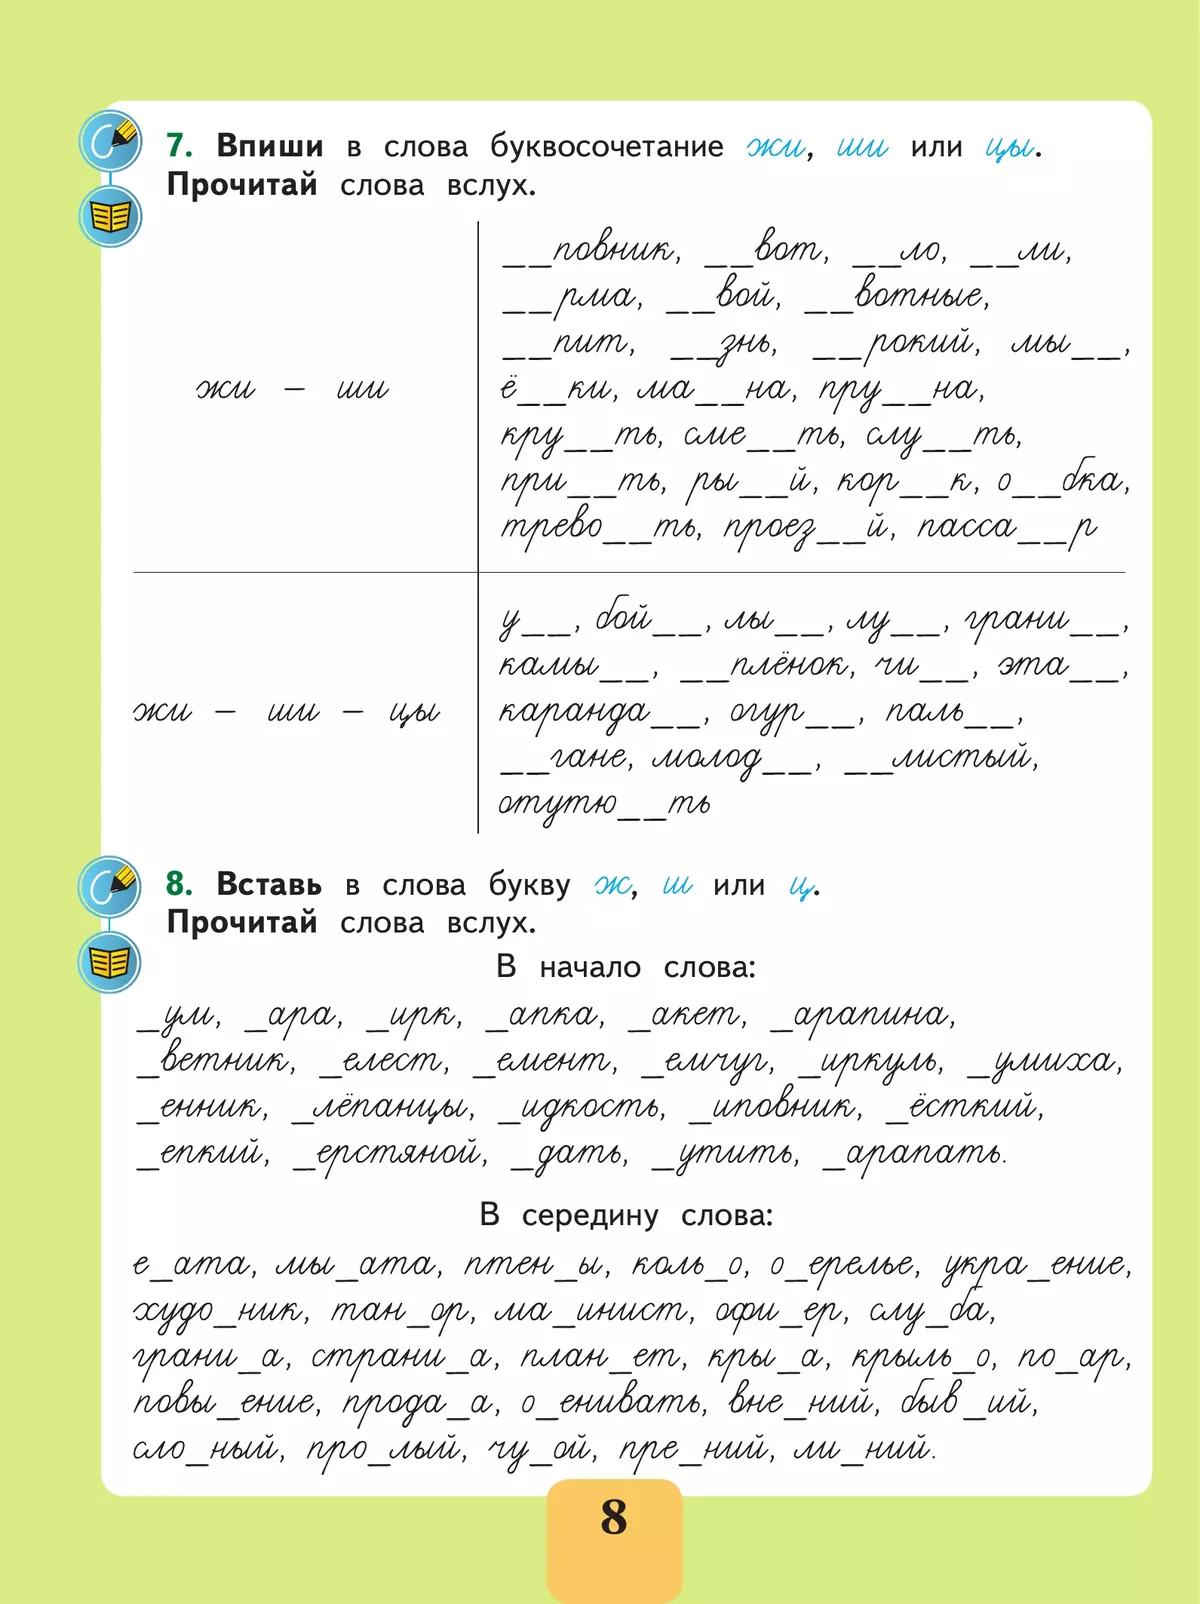 7. Впиши в слова буквосочетание жи, ши или цы.
Прочитай слова вслух.
жи – ши
__повник, __вот, __ло, __ли,
__рма, __вой, __вотные,
__пит, __знь, __рокий, мы__,
ё__ки, ма__на, пру__на,
кру__ть, сме__ть, слу__ть,
при__ть, ры__й, кор__к, о__бка,
трево__ть, проез__й, пасса__р
жи – ши – цы
у__, бой__, лы__, лу__, грани__,
камы__, __плёнок, чи__, эта__,
каранда__, огур__, паль__,
__гане, молод__, __листый,
отутю__ть
8. Вставь в слова букву ж, ш или ц.
Прочитай слова вслух.
В начало слова:
_ум, _ара, _ирк, _апка, _акет, _арапина,
_ветник, _елест, _емент, _емчуг, _иркуль, _умиха,
_енник, _лёпанцы, _идкость, _иповник, _ёсткий,
_епкий, _ерстяной, _дать, _утить, _арапать.
В середину слова:
е_ата, мы_ата, птен_ы, коль_о, о_ерелье, укра_ение,
худо_ник, тан_ор, ма_инист, офи_ер, слу_ба,
грани_а, страни_а, план_ет, кры_а, крыль_о, по_ар,
повы_ение, прода_а, о_енивать, вне_ний, быв_ий,
сло_ный, про_лый, чу_ой, пре_ний, ли_ний.
8